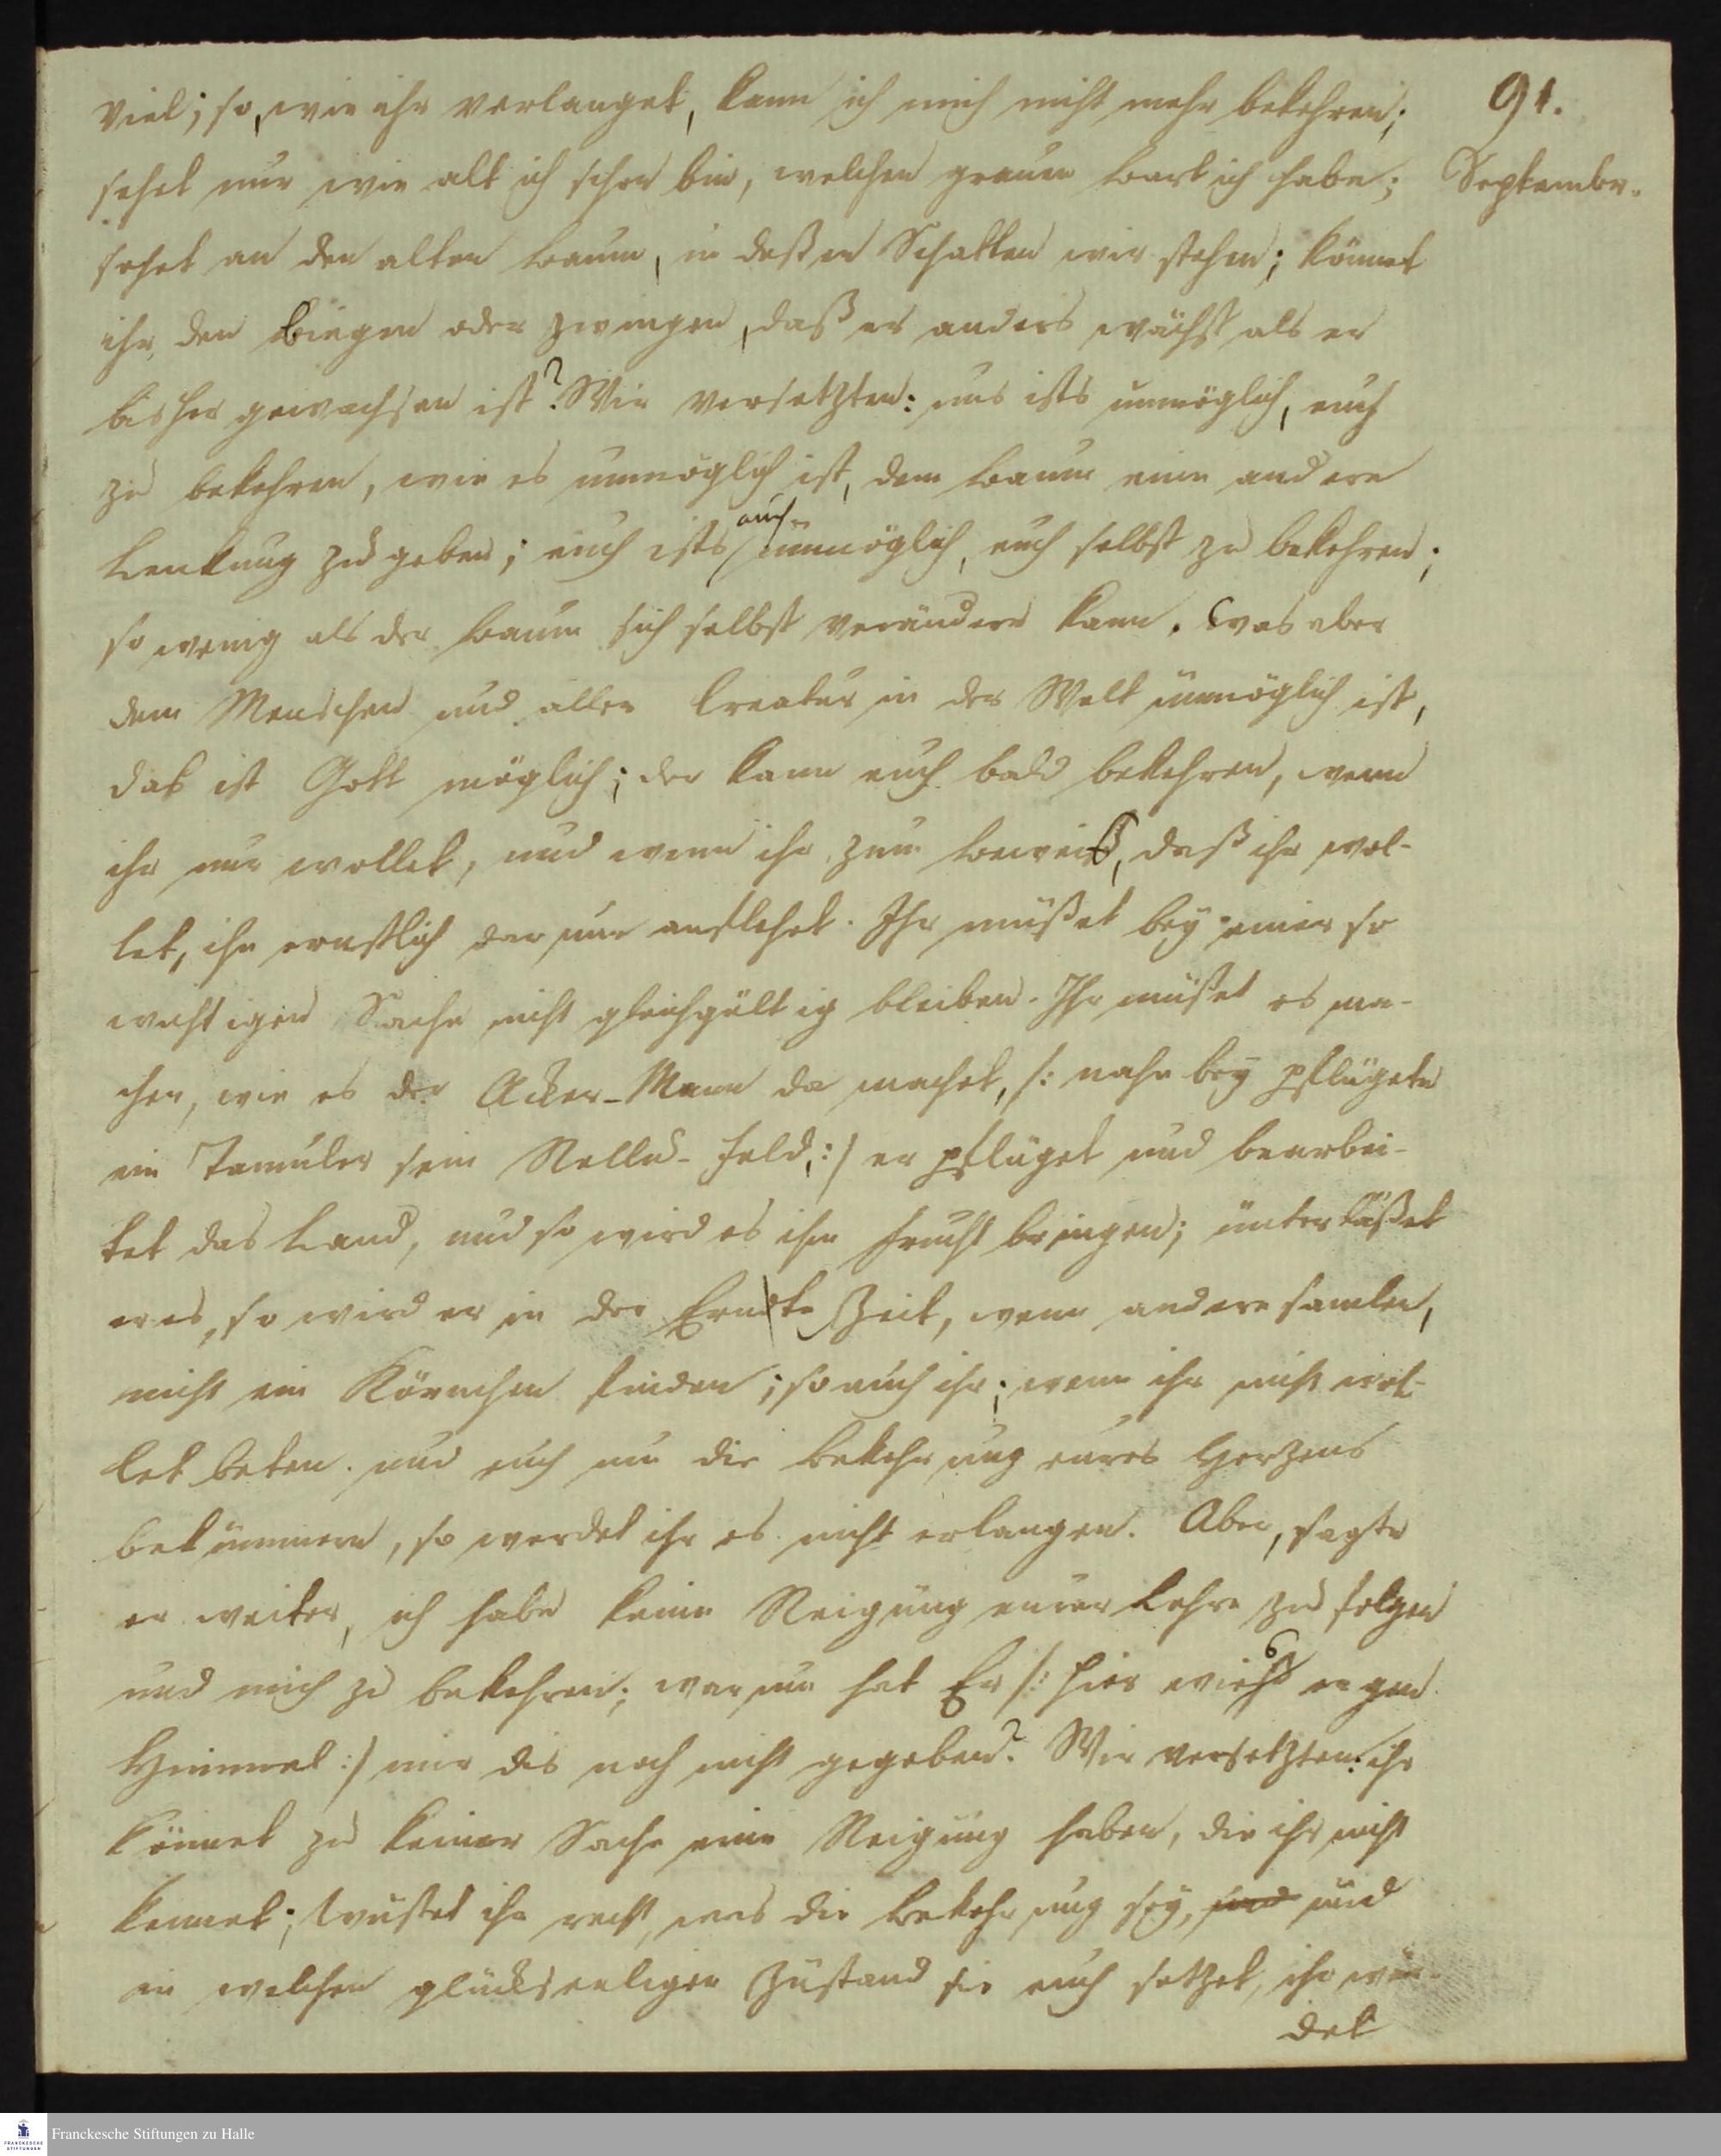 91.
September.
viel; so, wie ihr verlanget, kann ich mich nicht mehr bekehren;
sehet nur wie alt ich schon bin, welchen grauen Bart ich habe;
sehet an den alten Baum, in deßen Schatten wir stehen; könnet
ihr, den biegen oder zwingen, daß er anders wächst als er
bisher gewachsen ist? Wir versetzten: uns ists unmöglich, euch
zu bekehren, wie es unmöglich ist, dem Baum eine andere
Lenkung zu geben; euch ists auch unmöglich, euch selbst zu bekehren;
so wenig als der Baum sich selbst verändern kann. Was aber
dem Menschen und aller Creatur in der Welt unmöglich ist,
das ist Gott möglich; der kann euch bald bekehren, wenn
ihr nur wollet, und wenn ihr zum Beweiß, daß ihr wol-
let, ihn ernstlich darum anflehet. Ihr müßet bey einer so
wichtigen Sache nicht gleichgültig bleiben. Ihr müßet es ma-
chen, wie es der Acker-Mann da machet, /: nahe bey pflügete
ein Tamuler sein Nellu-Feld, :/ er pflüget und bearbei-
tet das Land, und so wird es ihm Frucht bringen; unterläßet
er es, so wird er in der Erndte Zeit, wenn andere samlen,
nicht ein Körnchen finden; so auch ihr; wenn ihr nicht wol-
let beten und euch um die Bekehrung eures Herzens
bekümmern, so werdet ihr es nicht erlangen. Aber, sagte
er weiter, ich habe keine Neigung eurer Lehre zu folgen
und mich zu bekehren; warum hat Er /: hier wieß er gen
Himmel :/ mir dis noch nicht gegeben? Wir versetzten: ihr
könnet zu keiner Sache eine Neigung haben, die ihr nicht
kennet; wüstet ihr recht, was die Bekehrung sey, und und
in welchen glückseeligen Zustand sie euch setzet, ihr wür-
det
Franckesche Stiftungen zu Halle
FRANCKESCHE
STIFTUNGEN